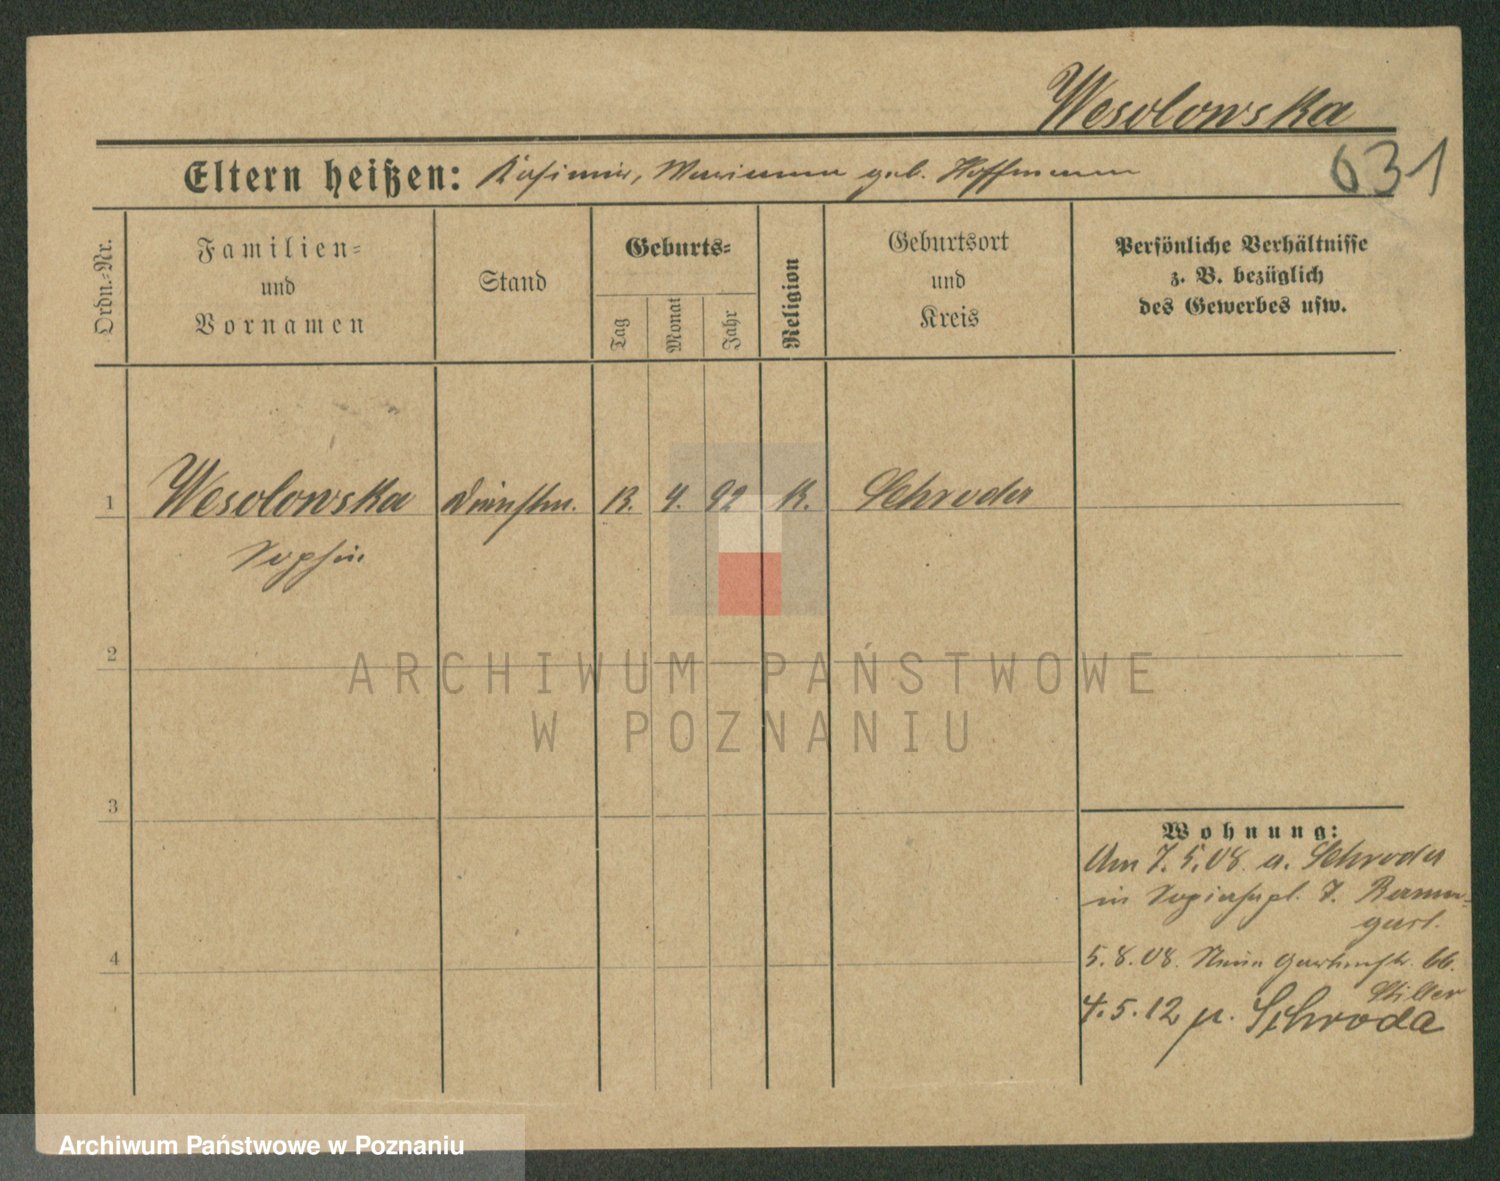 Wesolowska
Eltern heißen: Kasimir, Marianna geb. Hoffmann
631
Ordn.-Nr.
Familien-
und
Vornamen
Stand
Geburts-
Tag
Monat
Jahr
Religion
Geburtsort
und
Kreis
Persönliche Verhältnisse
z. B. bezüglich
des Gewerbes usw.
1 Wesolowska Dienstm. 13. 4. 92 K. Schroda
Sophie
2
3
4
Wohnung:
Am 7.5.08. a. Schroda
in Sapiehapl. 7. Baum-
gart.
5.8.08. Neue Gartenstr. 66.
Stiller
4.5.12 n. Schroda
ARCHIWUM PAŃSTWOWE
W POZNANIU
Archiwum Państwowe w Poznaniu